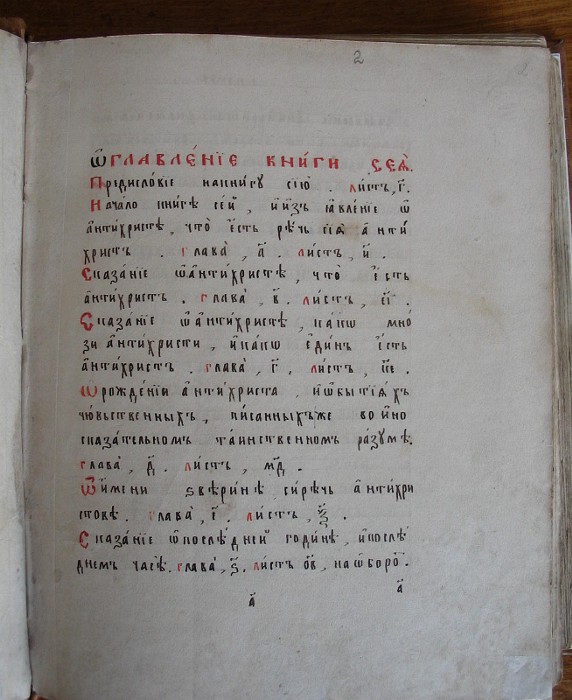 2
Ѡ҆ГЛАВЛЕ́НЇЕ КНИ́ГИ СЕѦ̀.
Предисло́вїе накни́гу сїю̀. ли́стъ, г҃.
Нача́ло кни́гѣ се́й, и҆и҆з̾ ꙗ҆вле́нїе ѡ҆
а҆нти́христѣ, что̀ є҆́сть рѣ́чь сїѧ̀ а҆нти́
христъ. глава̀, а҃. ли́стъ, и҃.
Сказа́нїе ѡ҆а҆нти́христѣ, что̀ є҆́сть
а҆нти́христъ. глава̀, в҃. ли́стъ,
Сказа́нїе ѡ҆а҆нти́христѣ, ка́кѡ мно́
зи а҆нти́христи, и҆ка́кѡ є҆ди́нъ є҆́сть
а҆нти́христъ. глава̀, г҃, ли́стъ,
Ѡ҆рожде́нїи а҆нти́христа, и҆ѡ҆бытїѧ́хъ
чю́вьственныхъ, пи́санныхъже во и҆но
сказа́тельномъ та́инственномъ ра́зумѣ.
глава̀, д҃. ли́стъ, мд҃.
Ѡ҆и҆́мени ѕвѣри́нѣ си́рѣчь а҆нти́хри
стовѣ. глава̀, є҃. ли́стъ, ѯ҃.
Сказа́нїе ѡ҆послѣ́дней годи́нѣ, и҆послѣ́
днемъ часѣ̀. глава̀, ѕ҃. ли́стъ ѻ҃в, наѡ҆боро́т.
а҃
а҃